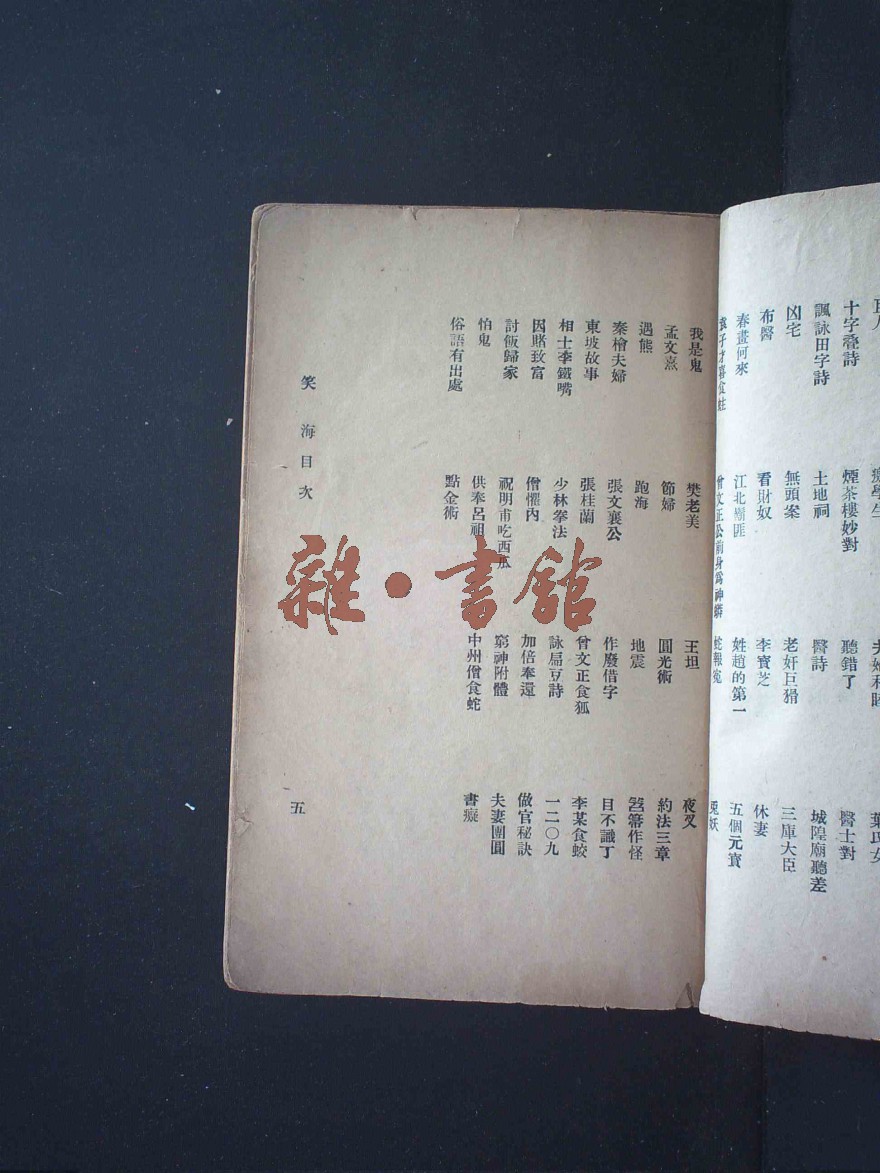 十字疊詩　煙茶樓妙對　聽錯了　醫士對
諷詠田字詩　土地祠　醫詩　城隍廟聽差
凶宅　無頭案　老奸巨猾　三庫大臣
布醫　看財奴　李寶芝　休妻
春晝何來　江北匪　姓趙的第一　五個元寶
袁子才喜食蛙　曾文正公前身爲神蟒　蛇報寃　兎妖
我是鬼　樊老美　王坦　夜叉
孟文熹　節婦　圓光術　約法三章
遇熊　跑海　地震　笤箒作怪
秦檜夫婦　張文襄公　作廢借字　目不識丁
東坡故事　張桂蘭　曾文正食狐　李某食蛟
相士李鐵嘴　少林拳法　詠扁豆詩　一二〇九
因賭致富　僧懼內　加倍奉還　做官秘訣
討飯歸家　祝明甫吃西瓜　窮神附體　夫妻團圓
怕鬼　供奉呂祖　中州僧食蛇　書癡
俗語有出處　點金術
笑海目次　五
雜·書館